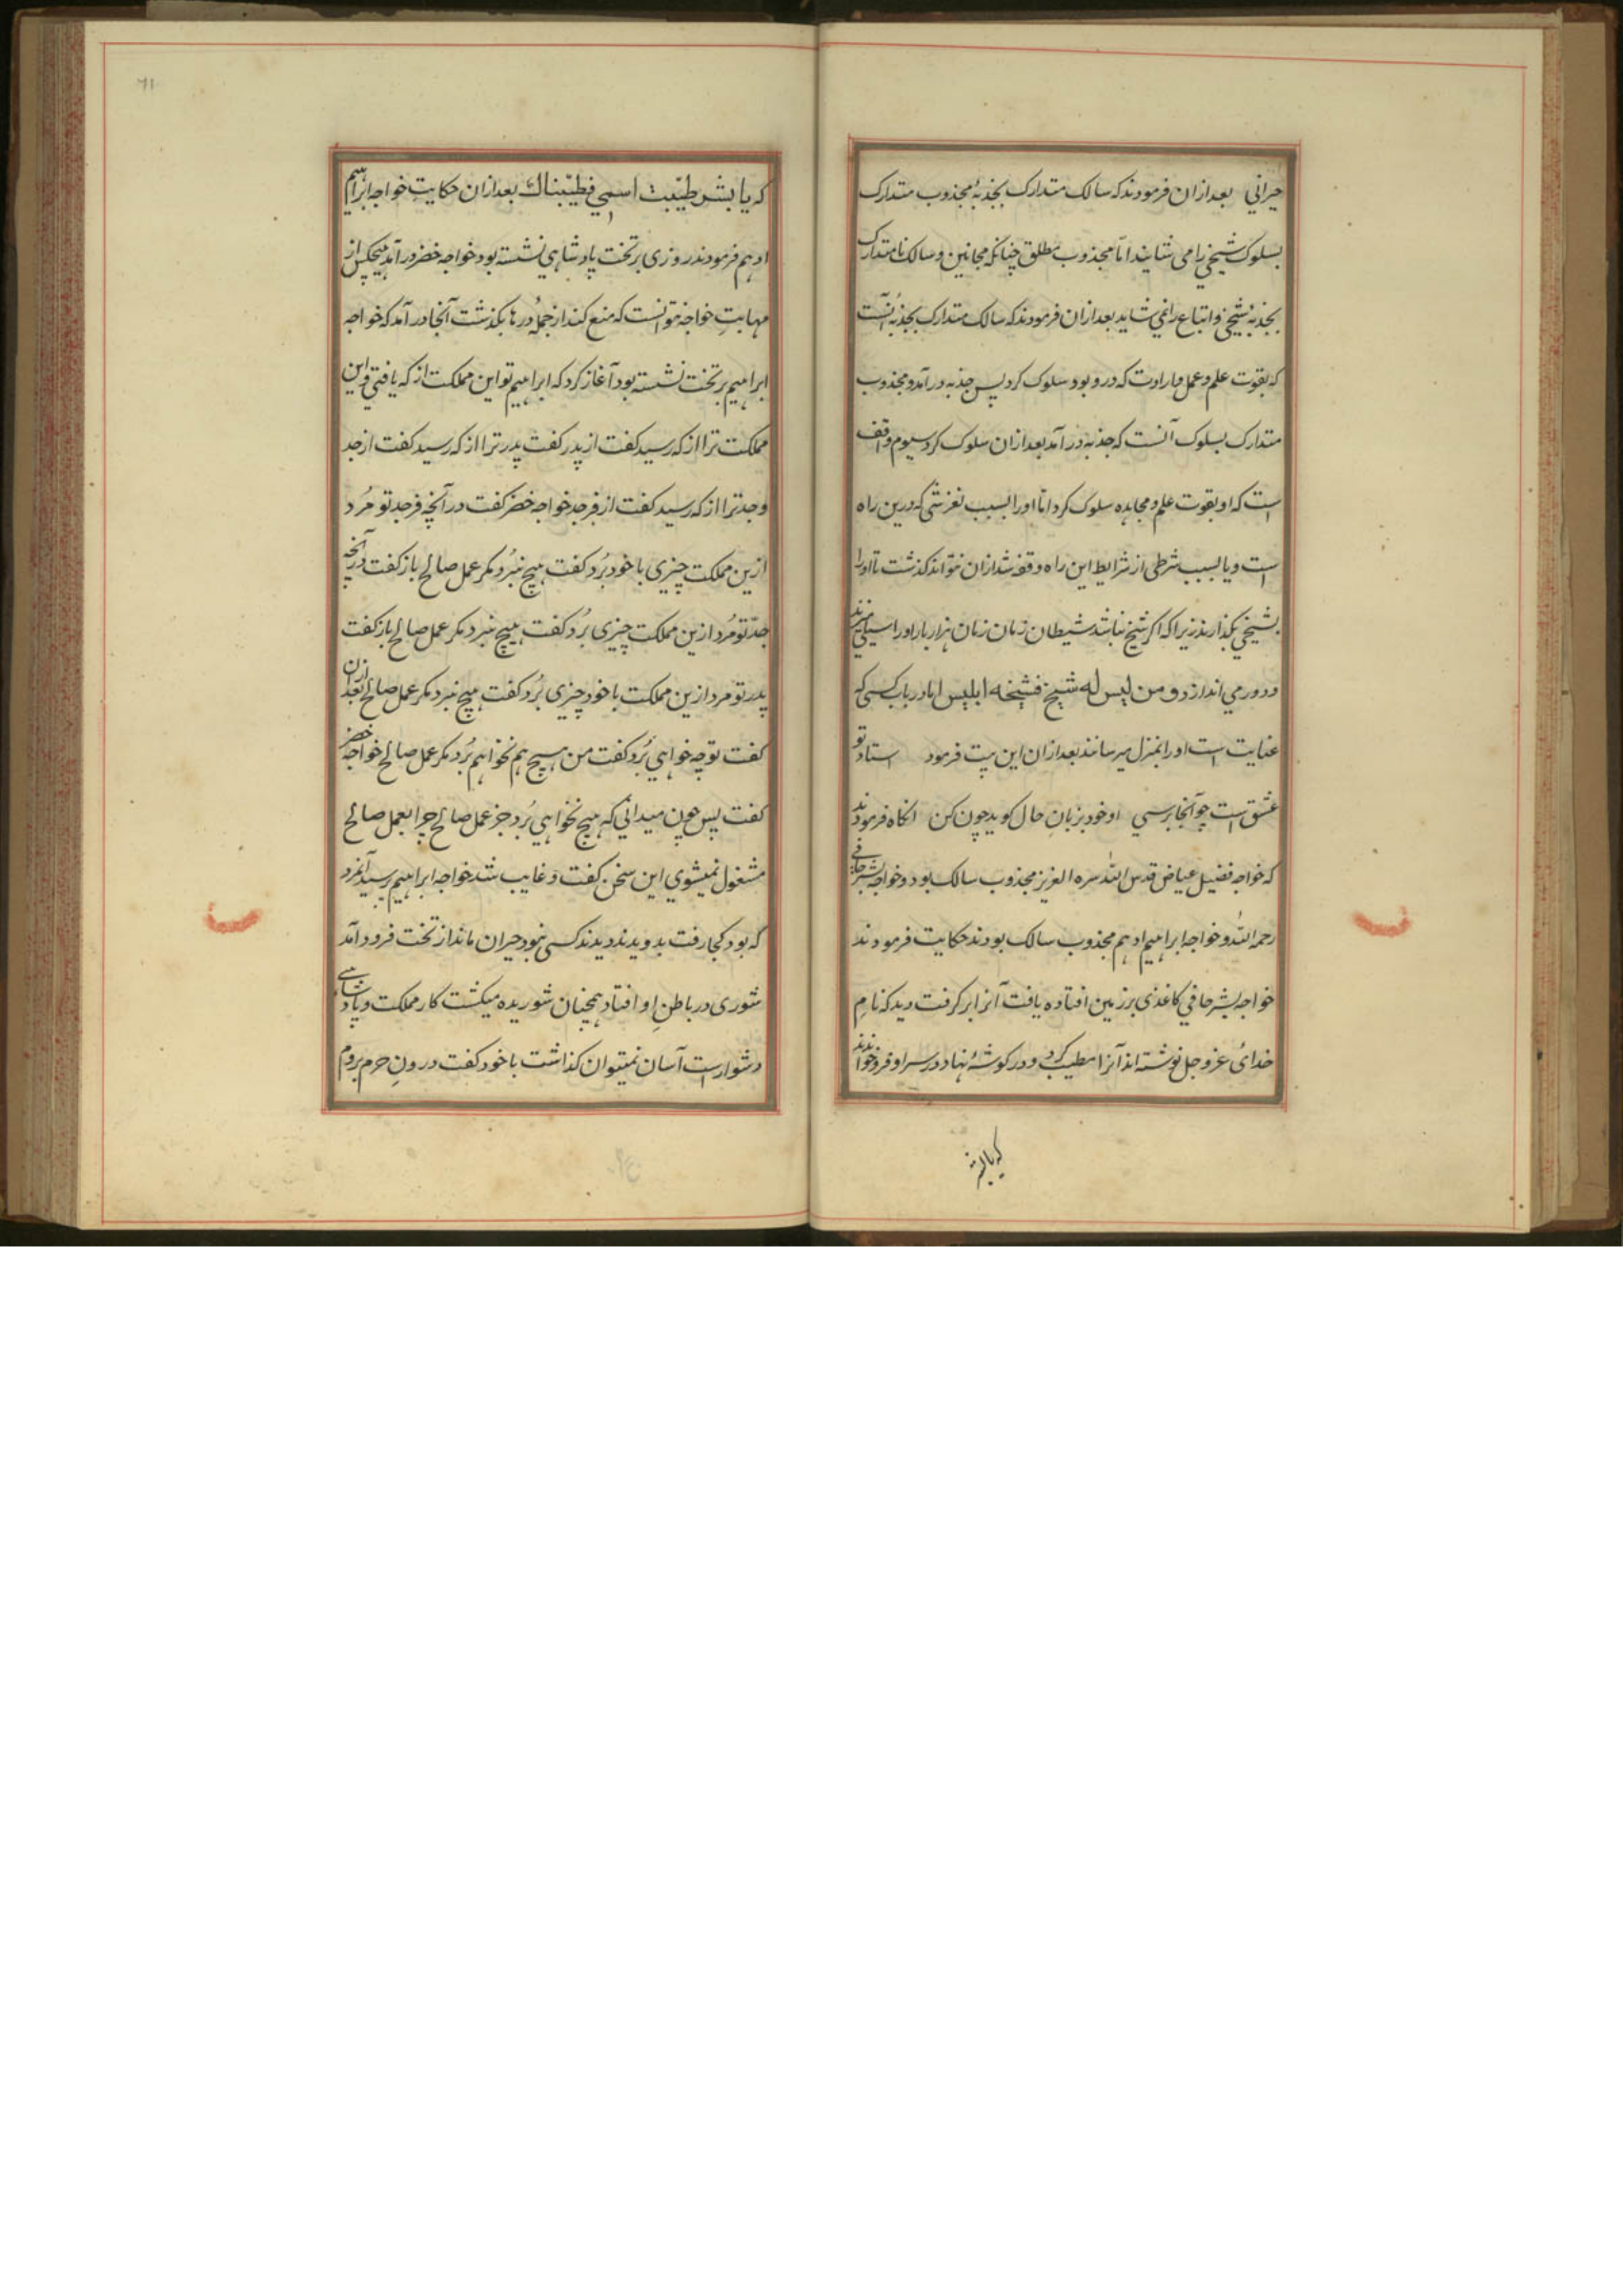 حیرانی بعد ازان فرمودند که سالک متدارک بجذبهٔ مجذوب متدارک
بسلوک شیخی را می شایند اما مجذوب مطلق چنانکه مجانین و سالک نامتدارک
بجذبه شیخی و اتباع را نمی شاید بعد ازان فرمودند که سالک متدارک بجذبه آنست
که بقوت علم و عمل و ارادت که درو بود سلوک کرد پس جذبه در آمد و مجذوب
متدارک بسلوک آنست که جذبه در آمد بعد ازان سلوک کرد سیوم واقف
است که او بقوت علم و مجاهده سلوک کرد اما او را بسبب لغزشی که درین راه
است و یا بسبب شرطی از شرایط این راه وقفه شد ازان نتواند گذشت تا او را
بشیخی بگذارند زیرا که اگر شیخ نباشد شیطان زمان زمان هزار بار او را سیلی میزند
و دور می اندازد و من لیس له شیخ فشیخه ابلیس اما در باب کسی که
عنایت است او را بمنزل میرسانند بعد ازان این بیت فرمود استاد تو
عشق است چو آنجا برسی او خود بزبان حال گوید چون کن انگاه فرمودند
که خواجه فضیل عیاض قدس الله سره العزیز مجذوب سالک بود و خواجه بشر حافی
رحمه الله و خواجه ابراهیم ادهم مجذوب سالک بودند حکایت فرمودند
خواجه بشر حافی کاغذی بر زمین افتاده یافت آنرا بر گرفت دید که نام
خدائ عز و جل نوشته اند آنرا مطیب کرد و در گوشهٔ نهاد در سر او فرو خواندند
که یا بشر
۶۱
که یا بشر طیّبت اسمی فطیّبناک بعد ازان حکایت خواجه ابراهیم
ادهم فرمودند روزی بر تخت پادشاهی نشسته بود خواجه خضر در آمد هیچکس از
مهابت خواجه نتوانست که منع کند از جملهٔ درها بگذشت آنجا در آمد که خواجه
ابراهیم بر تخت نشسته بود آغاز کرد که ابراهیم تو این مملکت از که یافتی و این
مملکت ترا از که رسید گفت از پدر گفت پدر ترا از که رسید گفت از جد
و جد ترا از که رسید گفت از فرجد خواجه خضر گفت در آنچه فرجد تو مُرد
ازین مملکت چیزی با خود بُرد گفت هیچ نبُرد مگر عمل صالح باز گفت در آنچه
جدّ تو مُرد ازین مملکت چیزی بُرد گفت هیچ نبرد مگر عمل صالح باز گفت
پدر تو مرد ازین مملکت با خود چیزی بُرد گفت هیچ نبرد مگر عمل صالح بعد ازان
گفت تو چه خواهی بُرد گفت من هیچ هم نخواهم بُرد مگر عمل صالح خواجه خضر
گفت پس چون میدانی که هیچ نخواهی بُرد جز عمل صالح چرا بعمل صالح
مشغول نمیشوی این سخن گفت و غایب شد خواجه ابراهیم پرسید آنمرد
که بود کجا رفت بدویدند دیدند کسی نبود حیران ماند از تخت فرود آمد
شوری در باطنِ او افتاد همچنان شوریده میگشت کار مملکت و پادشاهی
دشوار است آسان نمیتوان گذاشت با خود گفت درونِ حرم بروم